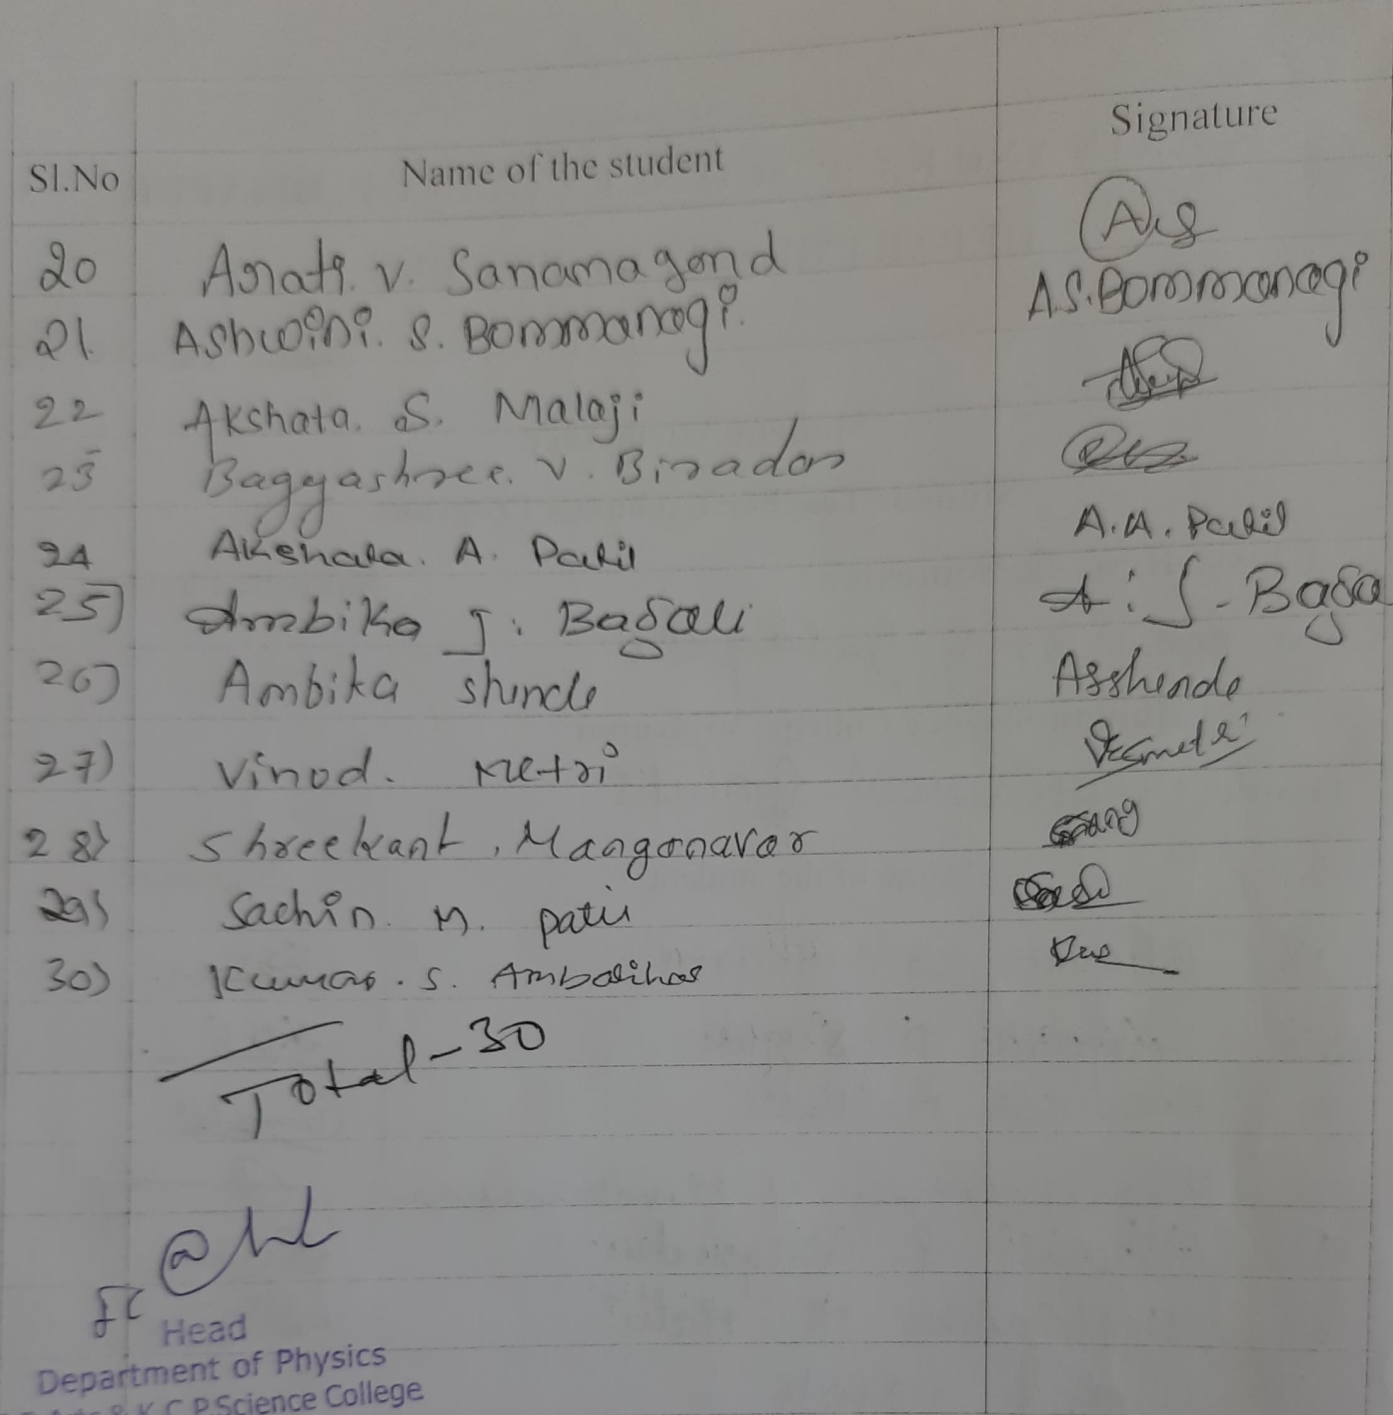 Sl.No Name of the student Signature
20 Arati. V. Sanamagond
21. Ashwini. S. Bommanagi. A.S.Bommanagi
22 Akshata. S. Malaji
23 Bagyashree. V. Biradar
24 Akshata. A. Patil A.A. Patil
25) Ambika J. Bagali A. J. Baga
26) Ambika Shinde Asshende
27) Vinod. Metri
28) Shreekant. Mangonavar
29) Sachin M. patil
30) Kumar. S. Ambalihal
Total - 30
Head
Department of Physics
Arts & K.C.P Science College